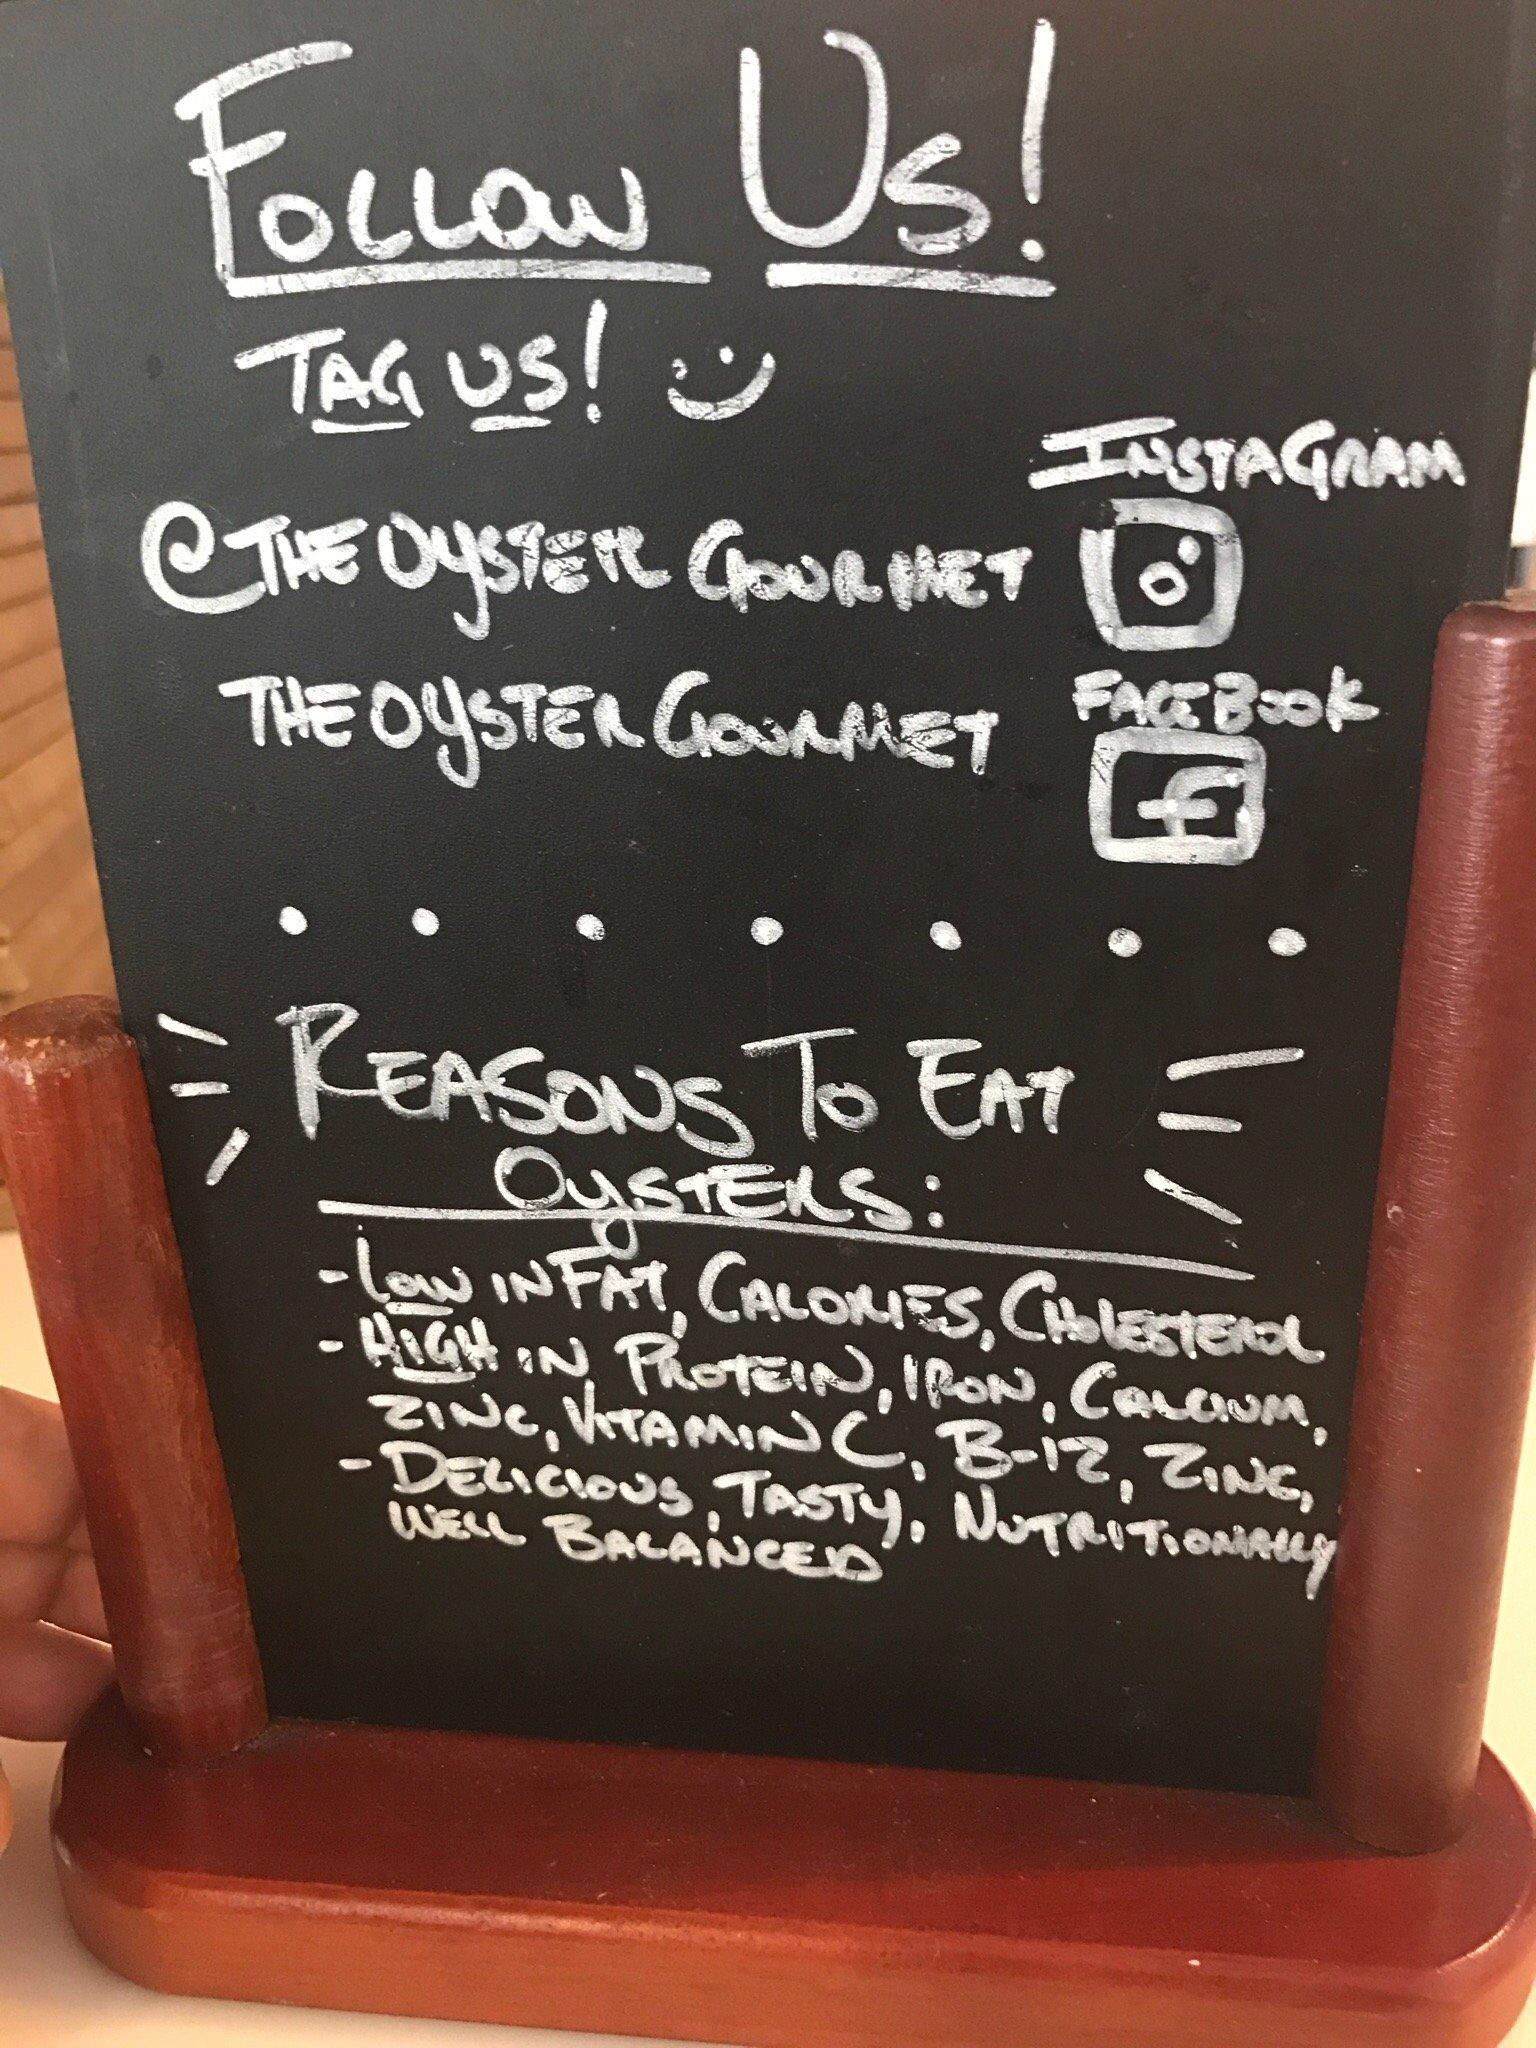 Follow Us!
TAG US!
INSTAGRAM
@THEOYSTERGOURMET
FACEBOOK
THEOYSTERGOURMET
REASONS TO EAT
OYSTERS:
- LOW IN FAT, CALORIES, CHOLESTEROL
- HIGH IN PROTEIN, IRON, CALCIUM,
ZINC, VITAMIN C, B-12, ZINC,
- DELICIOUS, TASTY, NUTRITIONALLY
WELL BALANCED